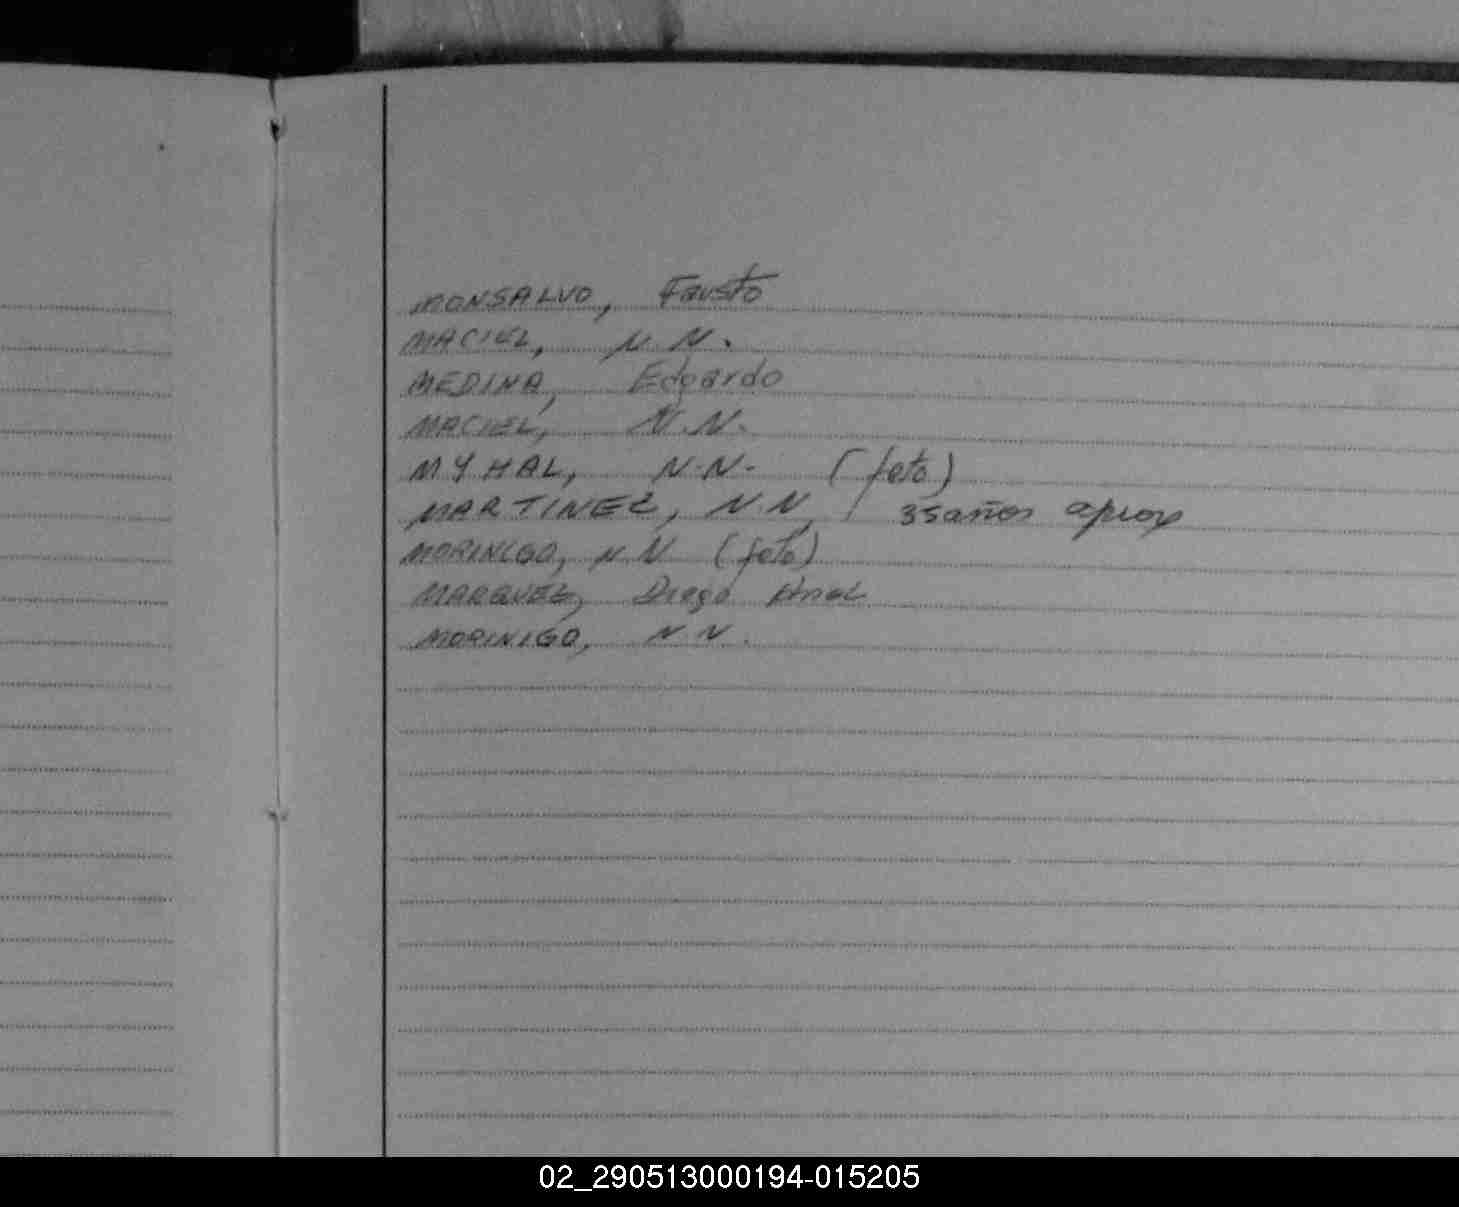 MONSALVO, Fausto
MACIEL, N.N.
MEDINA, Edgardo
MACIEL, N.N.
MYHAL, N.N. (feto)
MARTINEZ, N.N, / 35 años aprox
MORINIGO, N N (feto)
MARQUEZ, Diego
MORINIGO, N N.
02_290513000194-015205